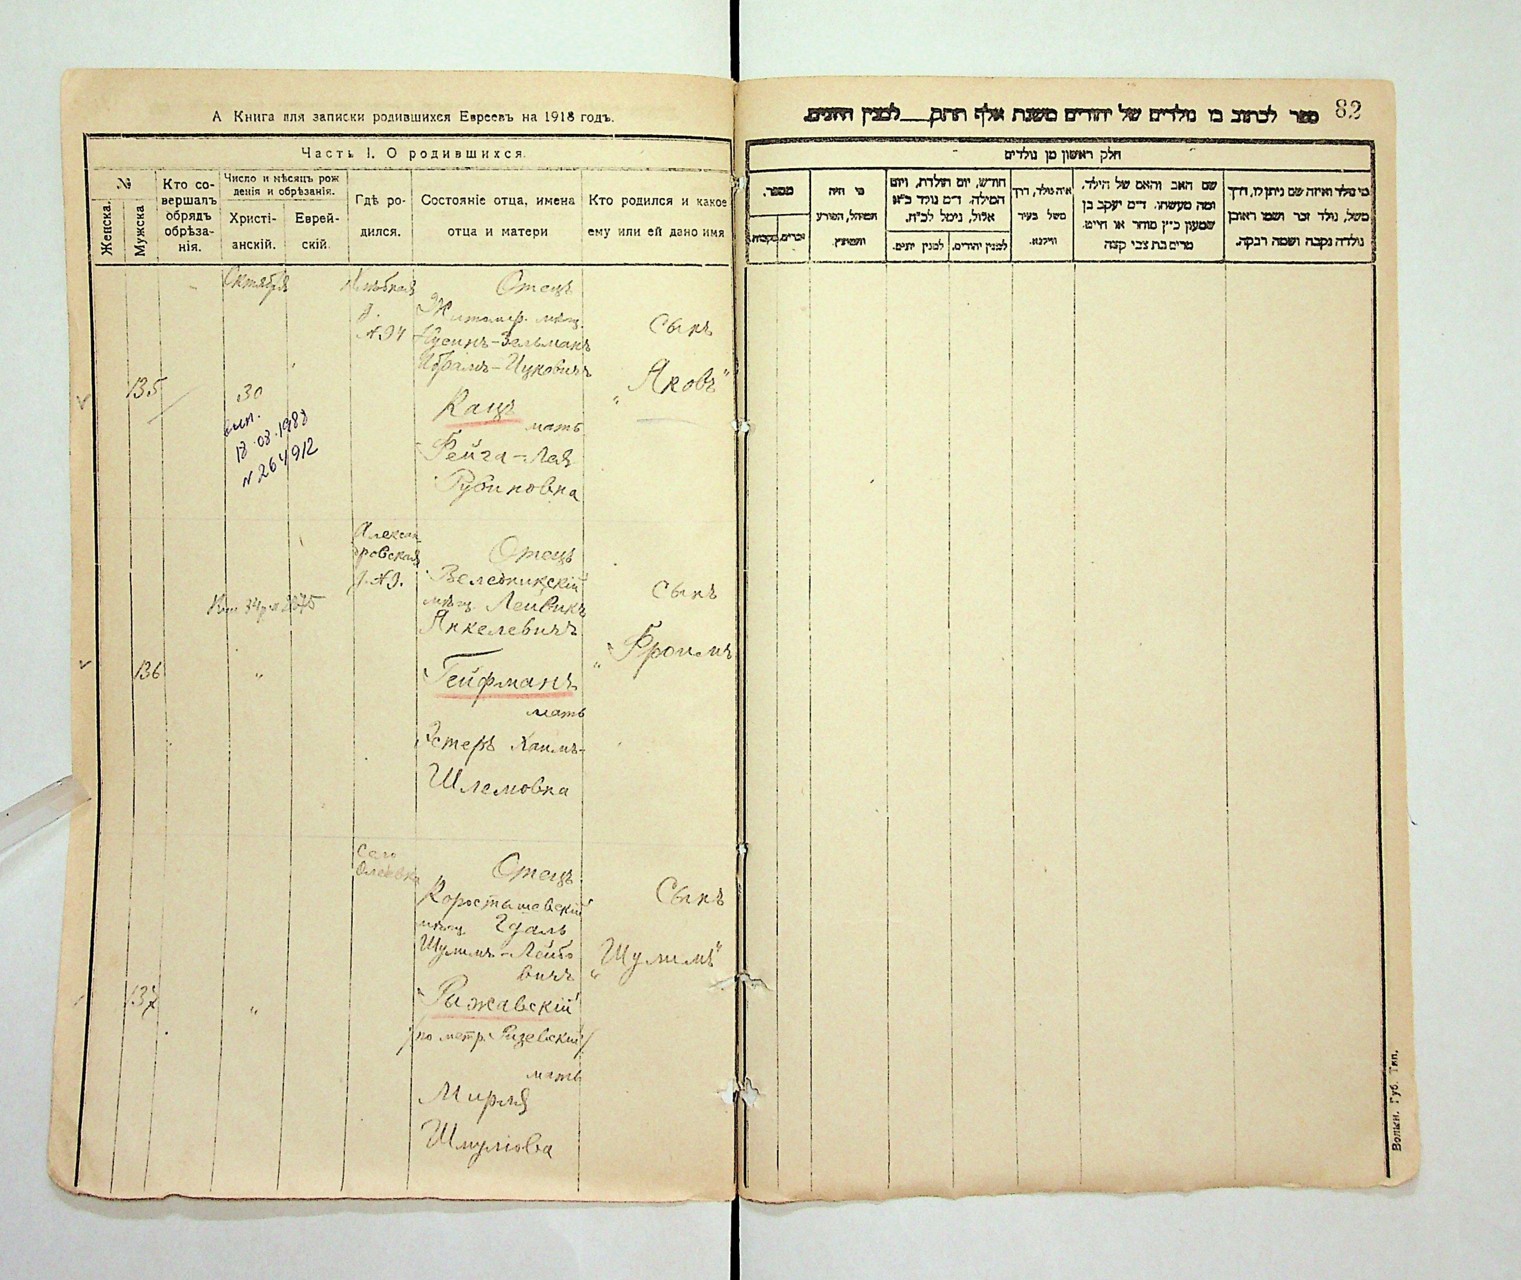 А Книга для записки родившихся Евреевъ на 1918 годъ.
Часть I. О родившихся.
№
Женска.
Мужска
Кто со-
вершалъ
обрядъ
обрѣза-
нія.
Число и мѣсяцъ рож
денія и обрѣзанія.
Христі-
анскій.
Еврей-
скій.
Гдѣ ро-
дился.
Состояніе отца, имена
отца и матери
Кто родился и какое
ему или ей дано имя
135
Октября
30
18.03.1988
N 264912
№94
Отецъ
Житомір. мѣщ.
Нусинъ-Зельманъ
Ицковичъ
Кацъ
мать
Фейга-Лея
Рубиновка
Сынъ
„Яковъ"
136
„
Алексан
ровская
№9.
Отецъ
Веледникскій
мѣщ. Лейвикъ
Янкелевичъ
Гейфманъ
мать
Эстеръ Хаимъ-
Шлемовка
Сынъ
„Фроимъ
137
„
Село
Отецъ
Коростышевскій
мѣщ. Гдаль
Шулимъ-Лейбо
вичъ
Рыжавскій
/по метр. Ризевскій/
мать
Мирля
Шмулiова
Сынъ
„Шулимъ"
82
ספר לכתוב בו נולדים של יהודים משנת אלף תתק___ למנין היונים.
חלק ראשון מן נולדים
מספר.
זכרים.
נקבות.
מי היה
המוהל, הפורע
והמוצץ.
חודש, יום תולדת, ויום
המילה. ד״מ נולד כ״א
אלול, נימול לכ״ח.
למנין יהודים.
למנין יונים.
איה נולד, דרך
משל בעיר
ווילנא.
שם האב והאם של הילד,
ומה מעשהו. ד״מ יעקב בן
שמעון כ״ץ סוחר או חייט.
מרים בת צבי קצה
מי נולד ואיזה שם ניתן לו, דרך
משל, נולד זכר ושמו ראובן
נולדה נקבה ושמה רבקה.
Волын. Губ. Тип.